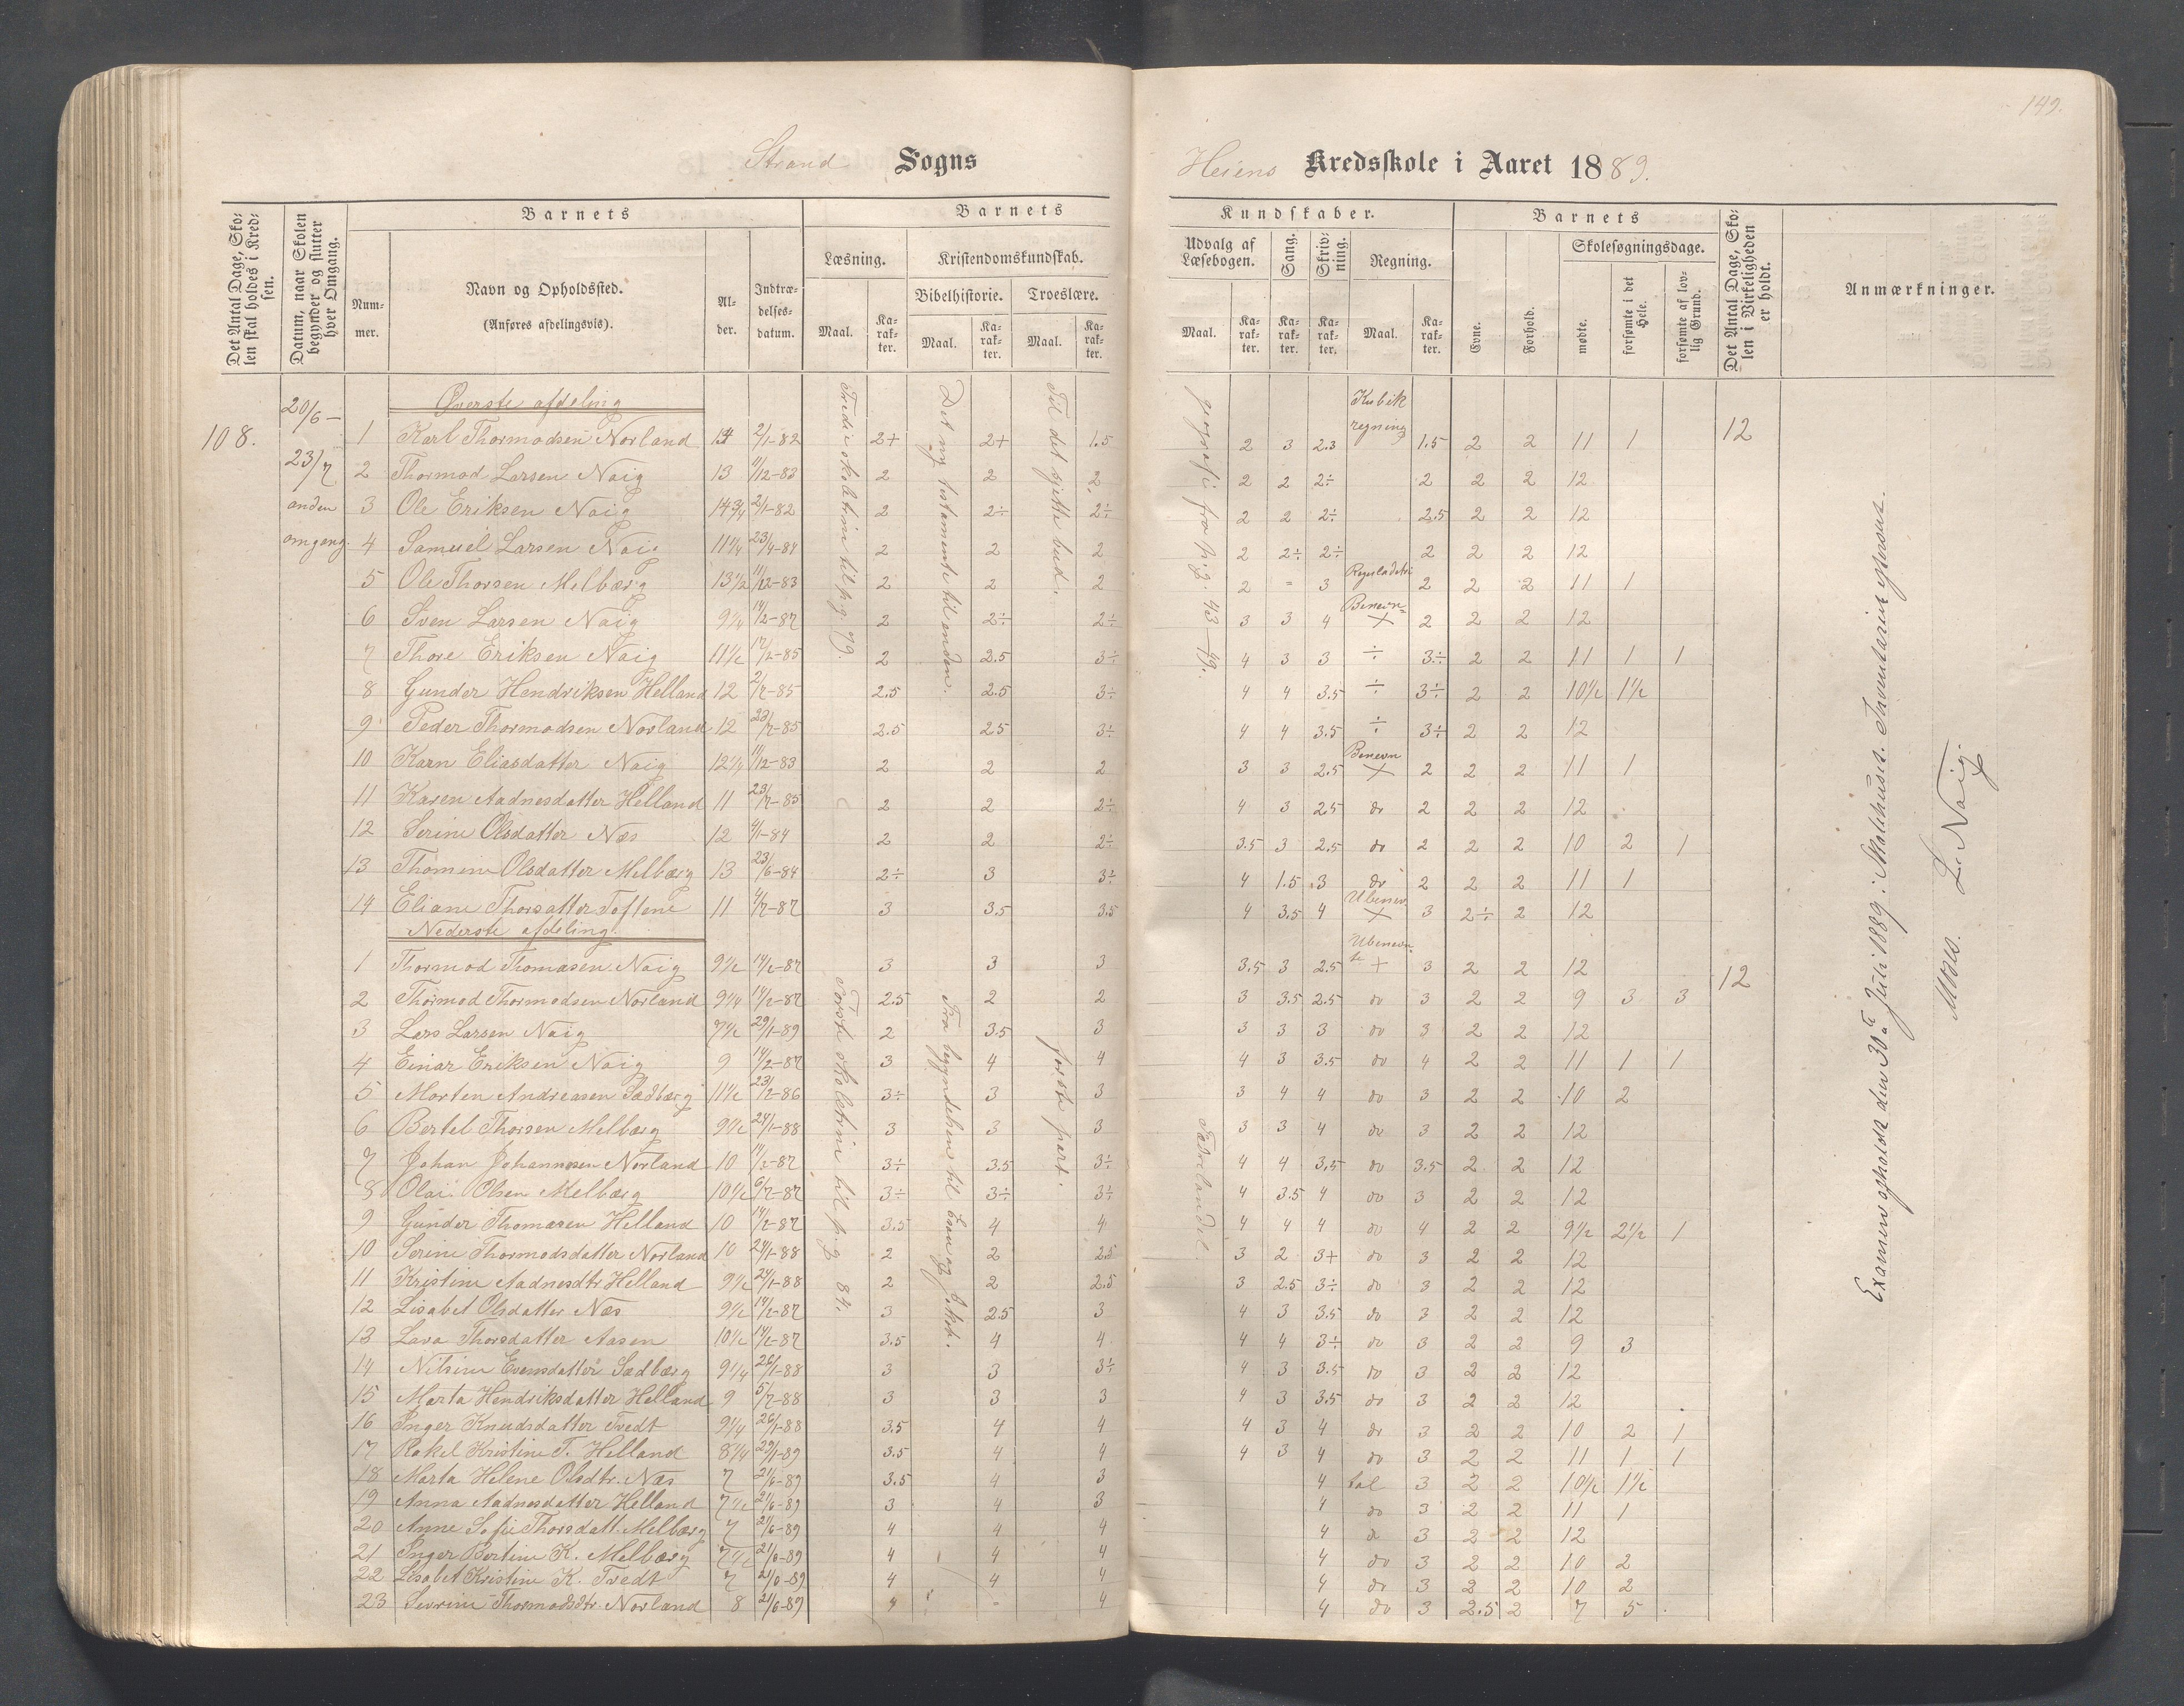 149.
Strand Sogns
Heiens Kredsskole i Aaret 1889.
Det Antal Dage, Skolen skal holdes i Kredsen.
Datum, naar Skolen begynder og slutter hver Omgang.
Barnets
Nummer.
Navn og Opholdssted.
(Anføres afdelingsvis).
Alder.
Indtrædelsesdatum.
Barnets
Læsning.
Kristendomskundskab.
Bibelhistorie.
Troeslære.
Maal. Karakter. Maal. Karakter. Maal. Karakter.
Kundskaber.
Udvalg af Læsebogen.
Sang.
Skrivning.
Regning.
Maal. Karakter. Karakter. Karakter. Maal. Karakter.
Barnets
Evne.
Forhold.
Skolesøgningsdage.
mødte.
forsømte i det Hele.
forsømte af lovlig Grund.
Det Antal Dage, Skolen i Virkeligheden er holdt.
Anmærkninger.
108.
20/6 –
23/7
anden
omgang.
Øverste afdeling
1 Karl Thormodsen Norland 14 2/1-82 2+ 2+ 1.5 2 3 2.3 Kubikregning 1.5 2 2 11 1 12
2 Thormod Larsen Naig 13 11/12-83 2 2 2 2 2 2÷ 2 2 2 12
3 Ole Eriksen Naig 14 3/4 2/1-82 2 2÷ 2÷ 2 2 2÷ 2.5 2 2 12
4 Samuel Larsen Naig 11 1/4 23/4-84 2 2 2 2 2÷ 2÷ 2 2 2 12
5 Ole Thorsen Melbærg 13 1/2 11/12-83 2 2 2 2 = 3 2 2 2 11 1
6 Sven Larsen Naig 9 1/4 14/2-87 2 2÷ 2÷ 3 3 4 Benevn= + 2 2 2 12
7 Thore Eriksen Naig 11 1/2 17/2-85 2 2.5 3÷ 4 3 3 ÷ 3÷ 2 2 11 1 1
8 Gunder Hendriksen Helland 12 2/7-85 2.5 2.5 3÷ 4 4 3.5 ÷ 3÷ 2 2 10 1/2 1 1/2
9 Peder Thormodsen Norland 12 23/7-85 2.5 2.5 3÷ 4 4 3.5 ÷ 3÷ 2 2 12
10 Karn Eliasdatter Naig 12 1/4 11/12-83 2 2 2 3 3 2.5 Benevn + 2 2 2 11 1
11 Karen Aadnesdatter Helland 11 23/7-85 2 2 2÷ 4 3 2.5 do 2 2 2 12
12 Serine Olsdatter Næs 12 4/1-84 2 2 2÷ 3.5 3 2.5 do 2 2 2 10 2 1
13 Thomine Olsdatter Melbærg 13 23/6-84 2÷ 3 3÷ 4 1.5 3 do 2 2 2 11 1
14 Eliane Thorsatter Toftene 11 4/7-87 3 3.5 3.5 4 3.5 4 Ubenev + 3 2÷ 2 12
Tredie skoletrin til p.g. 79.
Det ny testamente til enden.
Til det sjette bud.
geografi fra p.g. 43–49.
Nederste afdeling.
1 Thormod Thomasen Naig 9 1/2 14/2-87 3 3 3 3.5 3 2.5 Ubenevnte + 3 2 2 12 12
2 Thormod Thormodsen Norland 9 1/4 14/2-87 2.5 2 2 3 3.5 2.5 do 3 2 2 9 3 3
3 Lars Larsen Naig 7 1/2 29/1-89 2 3.5 3 3 3 3 do 3 2 2 12
4 Einar Eriksen Naig 9 14/2-87 3 4 4 4 3 3.5 do 4 2 2 11 1 1
5 Morten Andreasen Sædbærg 11 1/2 23/2-86 3÷ 3 3 3 4 4 do 3 2 2 10 2
6 Bertel Thorsen Melbærg 9 1/2 24/1-88 3 3 3 3 3 4 do 3 2 2 12
7 Johan Johannesen Norland 10 14/2-87 3÷ 3.5 3÷ 4 4 3.5 do 3.5 2 2 12
8 Olai Olsen Melbærg 10 1/2 6/7-87 3÷ 3÷ 3÷ 4 3.5 4 do 3 2 2 12
9 Gunder Thomasen Helland 10 14/2-87 3.5 4 4 4 4 4 do 4 2 2 9 1/2 2 1/2 1
10 Serine Thormodsdatter Norland 10 24/1-88 2 2 2.5 3 2 3+ do 3 2 2 12
11 Kristine Aadnesdtr Helland 9 1/2 24/1-88 2 2 2.5 3 2.5 3÷ do 3 2 2 12
12 Lisabet Olsdatter Næs 9 1/2 14/2-87 3 2.5 3 4 3 3.5 do 3 2 2 12
13 Lava Thorsdatter Aasen 10 1/2 14/2-87 3.5 4 4 4 4 3÷ do 3 2 2 9 3
14 Nilsine Evensdatter Sædbærg 9 1/4 26/1-88 3 3 3÷ 4 3 3.5 do 3 2 2 12
15 Marta Hendriksdatter Helland 9 5/7-88 3 3 3 4 3 3.5 do 3 2 2 12
16 Inger Knudsdatter Tvedt 9 1/4 26/1-88 3.5 4 4 4 3 4 do 3 2 2 10 2 1
17 Rakel Kristine T. Helland 8 1/4 29/1-89 3.5 4 4 4 3 4 do 3 2 2 11 1 1
18 Marta Helene Olsdtr. Næs 7 21/6-89 3.5 4 3 4 tal 3 2 2 10 1/2 1 1/2
19 Anna Aadnesdatter Helland 7 1/2 21/6-89 3 4 3 4 do 3 2 2 11 1
20 Anne Sofie Thorsdatt. Melbærg 7 21/6-89 4 4 4 4 do 3 2 2 12
21 Inger Bertine K. Melbærg 7 1/2 21/6-89 4 4 4 4 do 3 2 2 10 2
22 Lisabet Kristine K. Tvedt 7 21/6-89 4 4 4 4 do 3 2 2 10 2
23 Sevrine Thormodsdtr. Norland 8 21/6-89 4 = 4 4 do 3 2.5 2 7 5
Første skoletrin til p.g. 84.
Fra begyndelsen til Esau og Jakob.
første part.
Fædrelandet
Examen afholdt den 30te Juli 1889 i Skolehuset. Inventariet
L. Naig